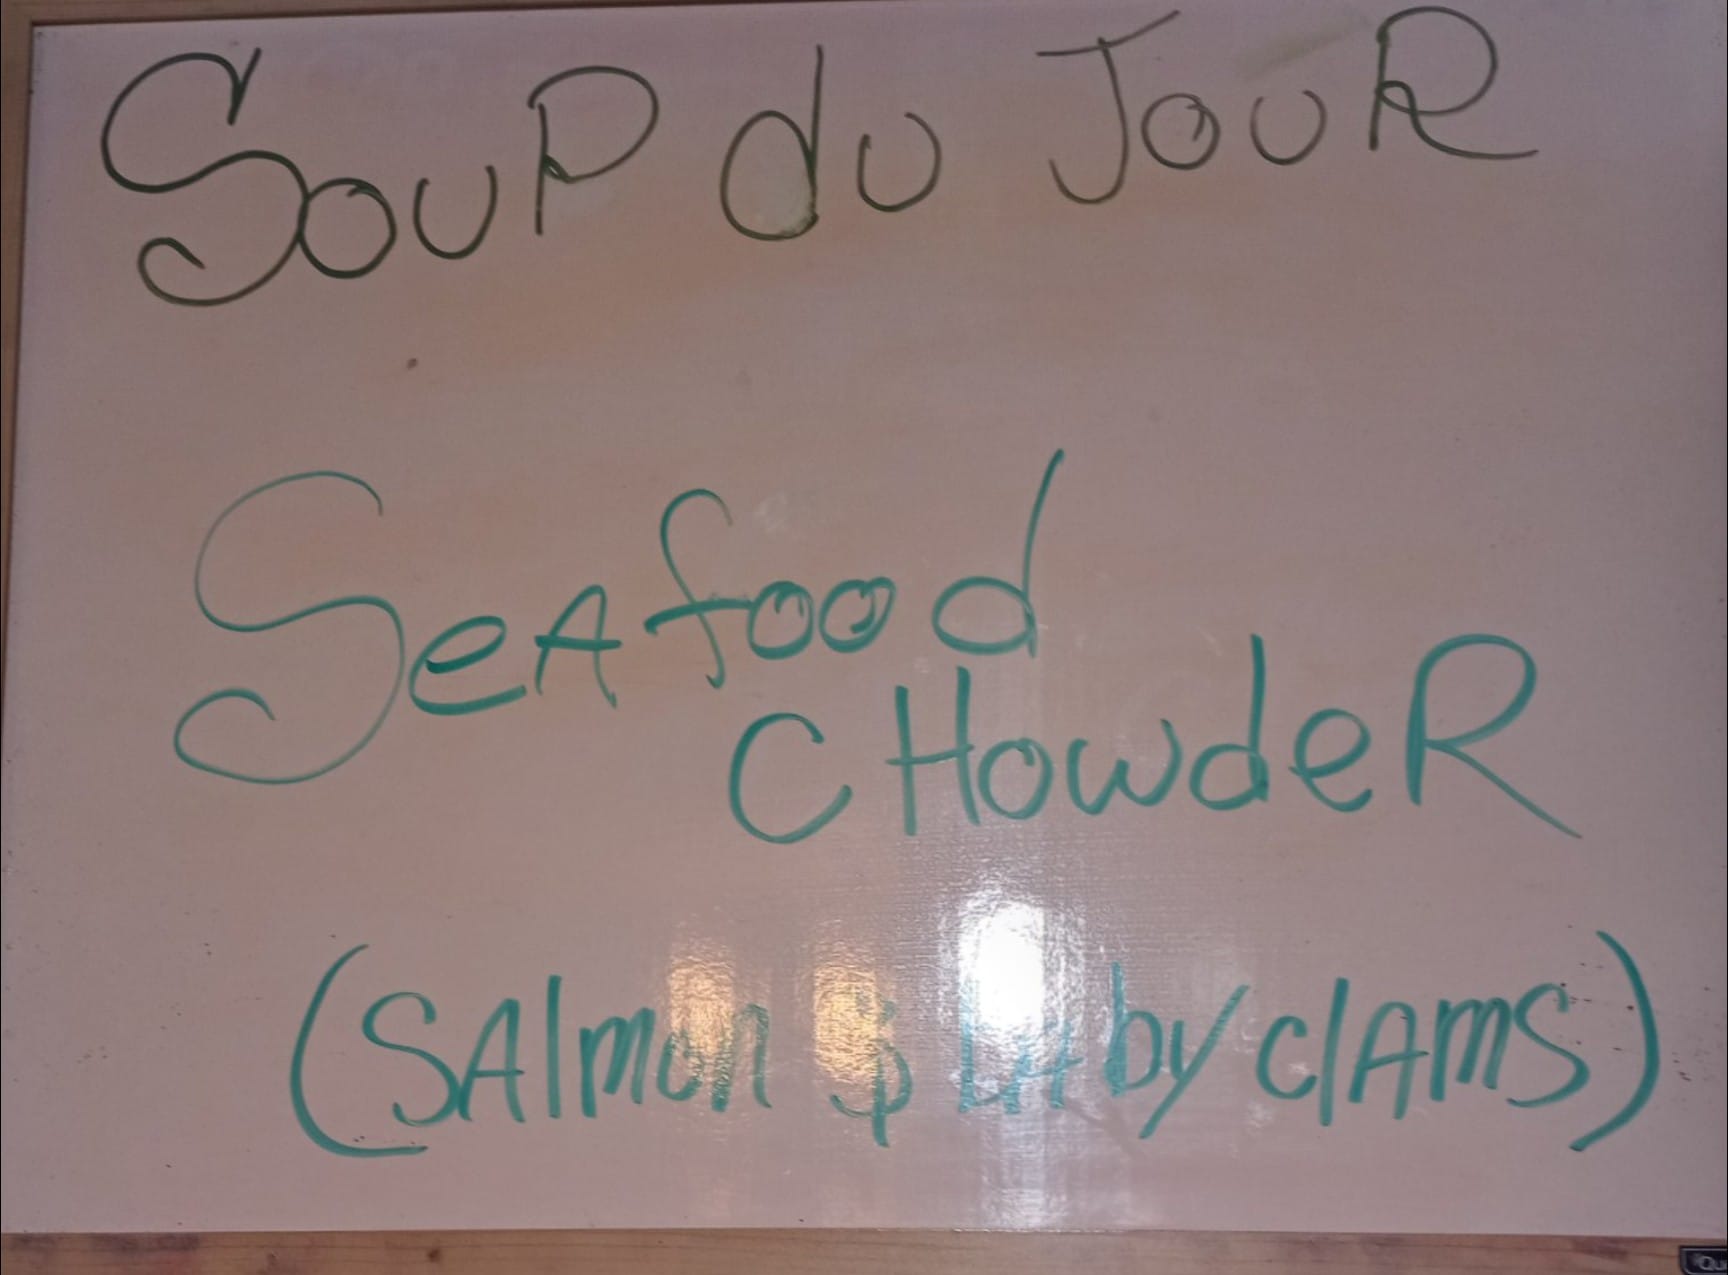 SouP du JouR
SeAfood
CHowdeR
(SAlmon & bAby clAms)